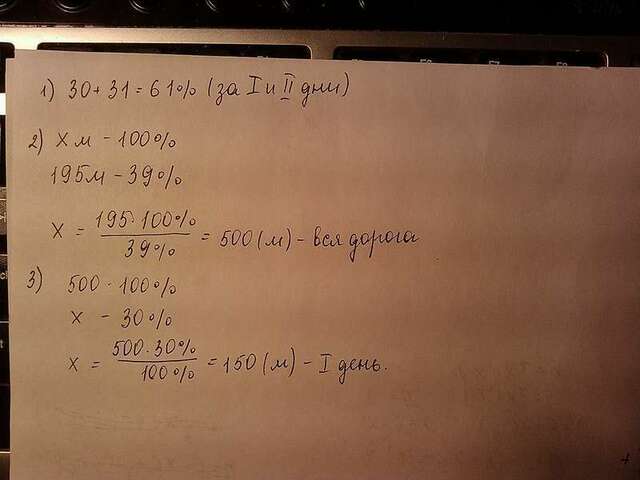 1) 30 + 31 = 61% (за I и II дни)
2) X м - 100%
195м - 39%
X = 195·100% / 39% = 500 (м) - вся дорога
3) 500 - 100%
X - 30%
X = 500·30% / 100% = 150 (м) - I день.